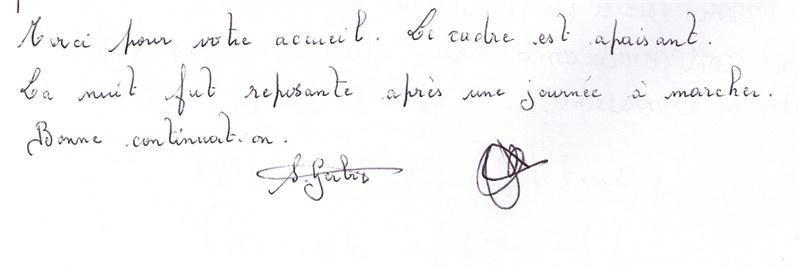 Merci pour votre accueil. Le cadre est apaisant.
La nuit fut reposante après une journée à marcher.
Bonne continuation.